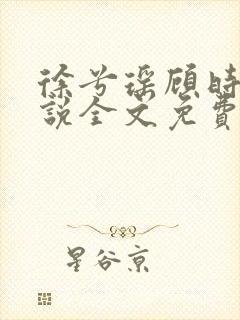 徐兮瑶顾时
说全文免费
星谷京